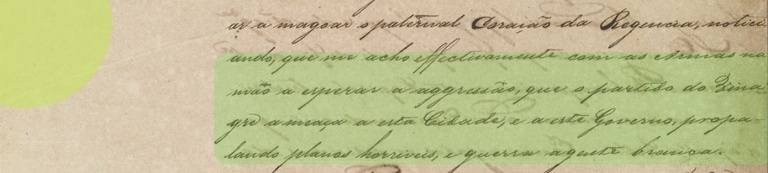 ar a magoar o paternal Coração da Regencia, notici
ando, que me acho effectivamente com as Armas na
mão a esperar a aggressão, que o partido do Vina
gre ameaça a esta Cidade, e a este Governo, propa-
lando planos horriveis, e guerra agente branca.